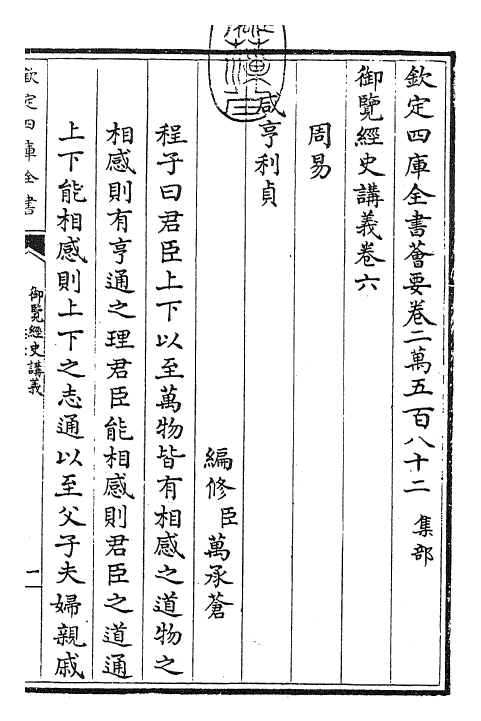 欽定四庫全書薈要卷二萬五百八十二 集部
御覽經史講義卷六
周易
咸亨利貞
編修臣萬承蒼
程子曰君臣上下以至萬物皆有相感之道物之
相感則有亨通之理君臣能相感則君臣之道通
上下能相感則上下之志通以至父子夫婦親戚
欽定四庫全書
御覽經史講義
一